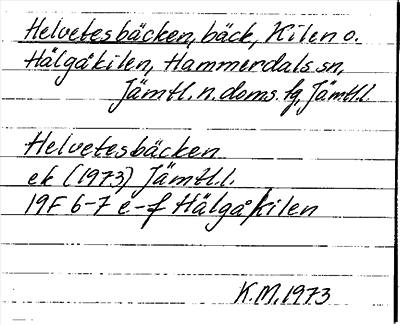 Helvetesbäcken, bäck, Kilen o.
Hälgåkilen, Hammerdals sn,
Jämtl. n. doms. fg, Jämtl. l.
Helvetesbäcken
ek (1973) Jämtl. l.
19F 6-7 e-f Hälgåkilen
K.M. 1973